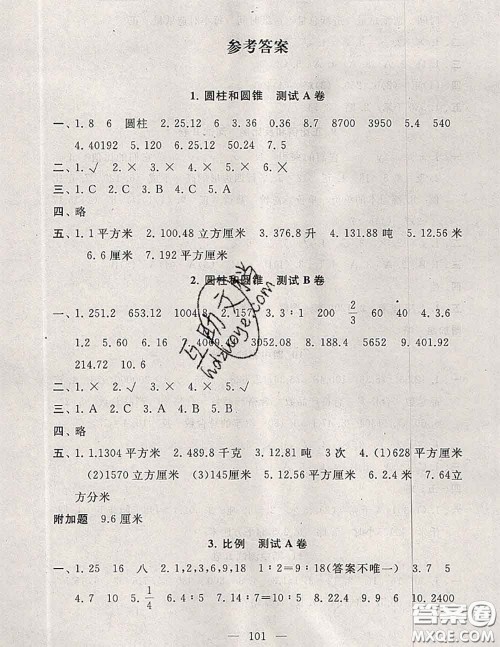 参考答案
1. 圆柱和圆锥　测试 A 卷
一、1. 8　6　圆柱　2. 25.12　6　3. 3.36　0.36　8.7　8700　3950　5.4　540
4. 40192　5. 120　6. 25.12　50.24　7. 5
二、1. √　2. ×　3. ×　4. ×　5. ×　6. ×
三、1. C　2. C　3. D　4. C　5. A
四、略
五、1. 1 平方米　2. 100.48 立方厘米　3. 376.8 升　4. 131.88 吨　5. 12.56 米
6. 75.36 立方厘米　7. 192 平方厘米
2. 圆柱和圆锥　测试 B 卷
一、1. 251.2　653.12　1004.8　2. 157　3. 3∶1　200　2/3　60　40　4. 6
1.2　5. 60　6. 16　7. 4009　3052.08　8. 1130.4　5652　9. 401.92
214.72　10. 12.56
二、1. ×　2. √　3. ×　4. ×　5. √
三、1. A　2. C　3. B　4. C　5. B
四、略
五、1. 1.1304 平方米　2. 489.8 千克　3. 12.81 吨　3 次　4. (1)628 平方厘米
(2)1570 立方厘米　(3)145 厘米　5. 12.56 平方厘米　6. 2 厘米　7. 0.64 立
方分米
附加题　9.6 厘米
3. 比例　测试 A 卷
一、1. 25　16　八　2. 1,2,3,6,9,18　1∶2＝9∶18(答案不唯一)　3. 7　5
4. 7　10　5. 1/4　6. 4∶5　7. 7∶10＝5∶9　8. 22　9. 6　10. 2400
— 101 —
互助文档
hdzuoye.com
答案圈
MXQE.COM